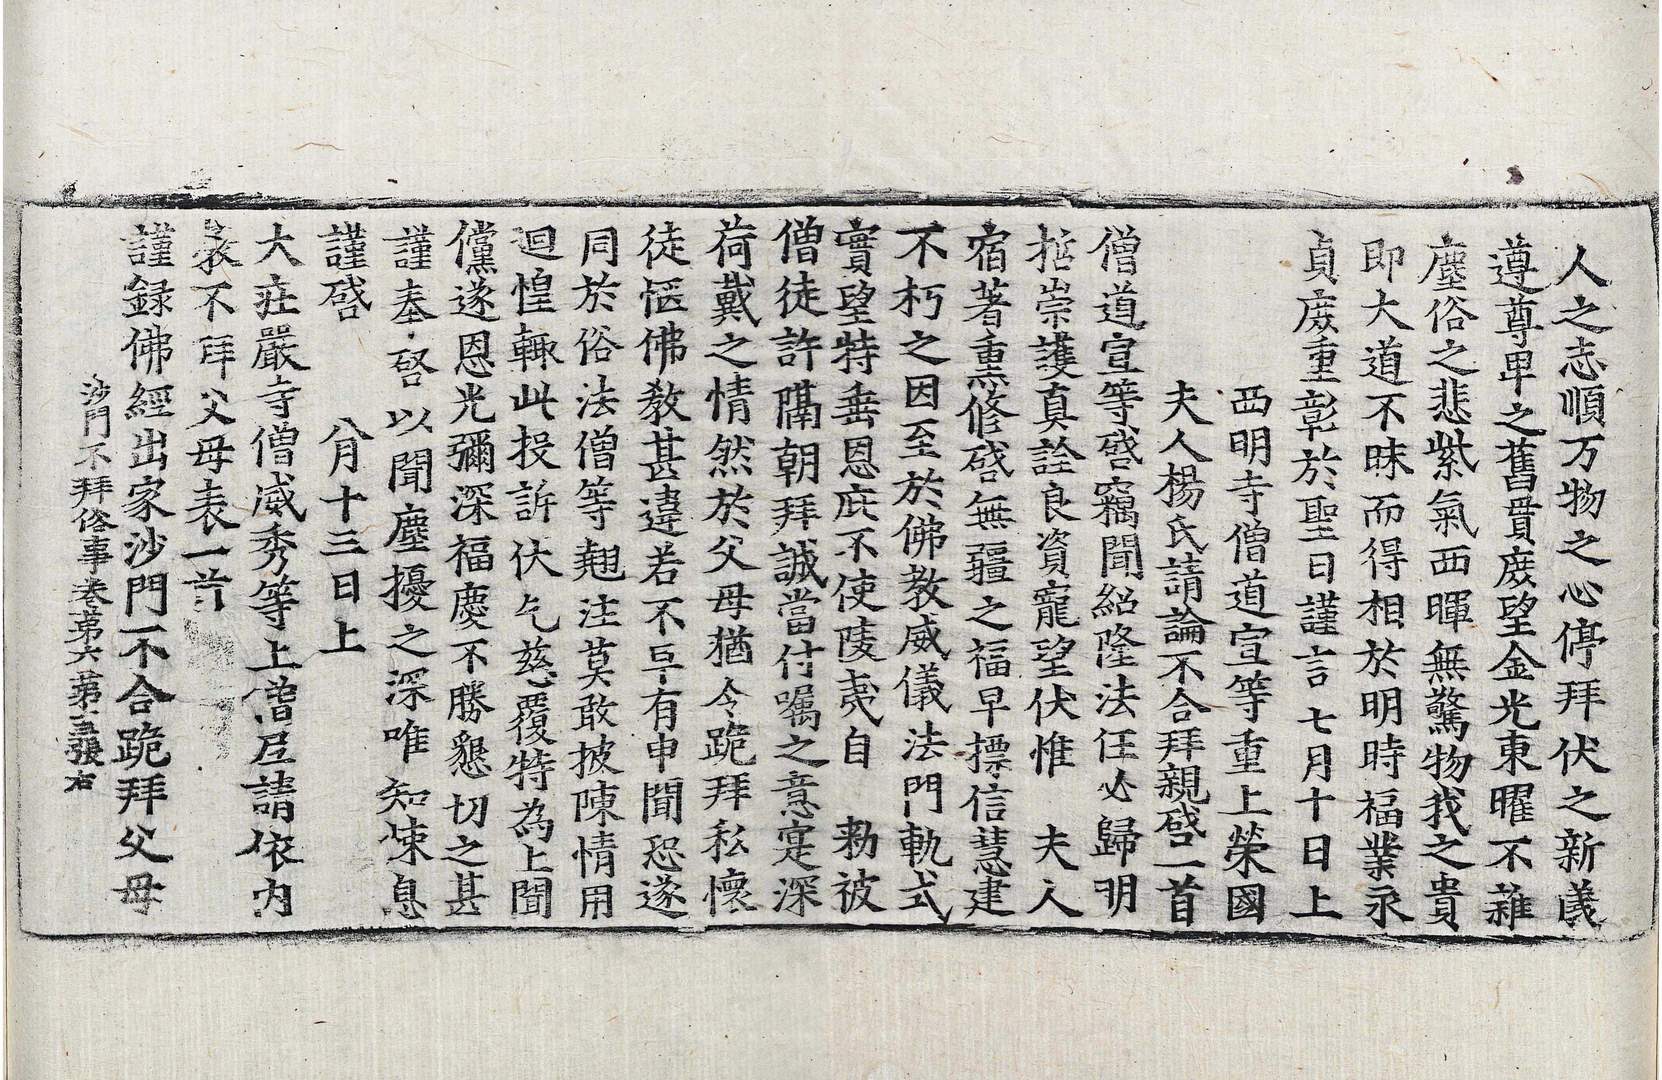 人之志順万物之心停拜伏之新儀
遵尊卑之舊貫庶望金光東曜不雜
塵俗之悲紫氣西暉無驚物我之貴
即大道不昧而得相於明時福業永
貞庶重彰於聖日謹言七月十日上
西明寺僧道宣等重上榮國
夫人楊氏請論不合拜親啓一首
僧道宣等啓竊聞紹隆法任必歸明
哲崇護真詮良資寵望伏惟 夫人
宿著熏修啓無疆之福早摽信慧建
不朽之因至於佛教威儀法門軌式
實望特垂恩庇不使陵夷自 勑被
僧徒許隔朝拜誠當付囑之意寔深
荷戴之情然於父母猶令跪拜私懷
徒愜佛教甚違若不早有申聞恐遂
同於俗法僧等翹注莫敢披陳情用
迴惶輙此投訴伏乞慈覆特為上聞
儻遂恩光彌深福慶不勝懇切之甚
謹奉啓以聞塵擾之深唯知悚息
謹啓 八月十三日上
大莊嚴寺僧威秀等上僧尼請依內
教不拜父母表一首
謹録佛經出家沙門不合跪拜父母
沙門不拜俗事卷第六 第十三張 右